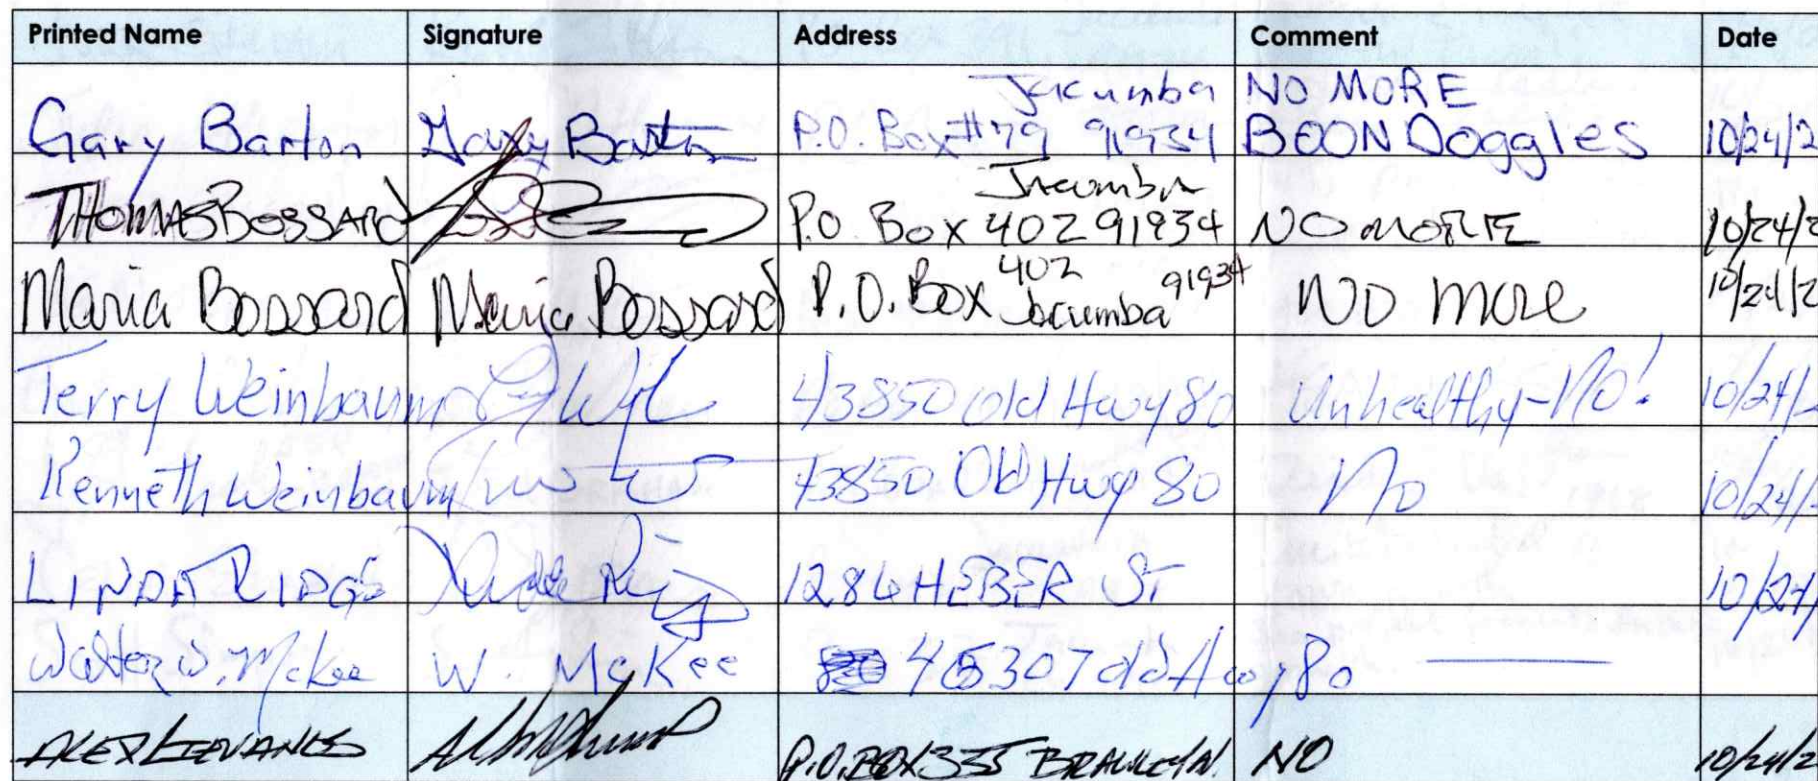 Printed Name Signature Address Comment Date
Gary Barton Gary Barton P.O. Box #79 Jacumba 91934 NO MORE BOONDoggles 10/24/2
THOMAS BOSSARD P.O. Box 402 Jacumba 91934 NO MORE 10/24/2
Maria Bossard Maria Bossard P.O. Box 402 Jacumba 91934 NO more 10/24/2
Terry Weinbaum 43850 Old Hwy 80 Unhealthy-No! 10/24/2
Kenneth Weinbaum 43850 Old Hwy 80 No 10/24/
LINDA RIDGE 1286 HEBER ST 10/24/
Walter W. McKee W. McKee 45307 Old Hwy 80
ALEX P.O. BOX 335 NO 10/24/2